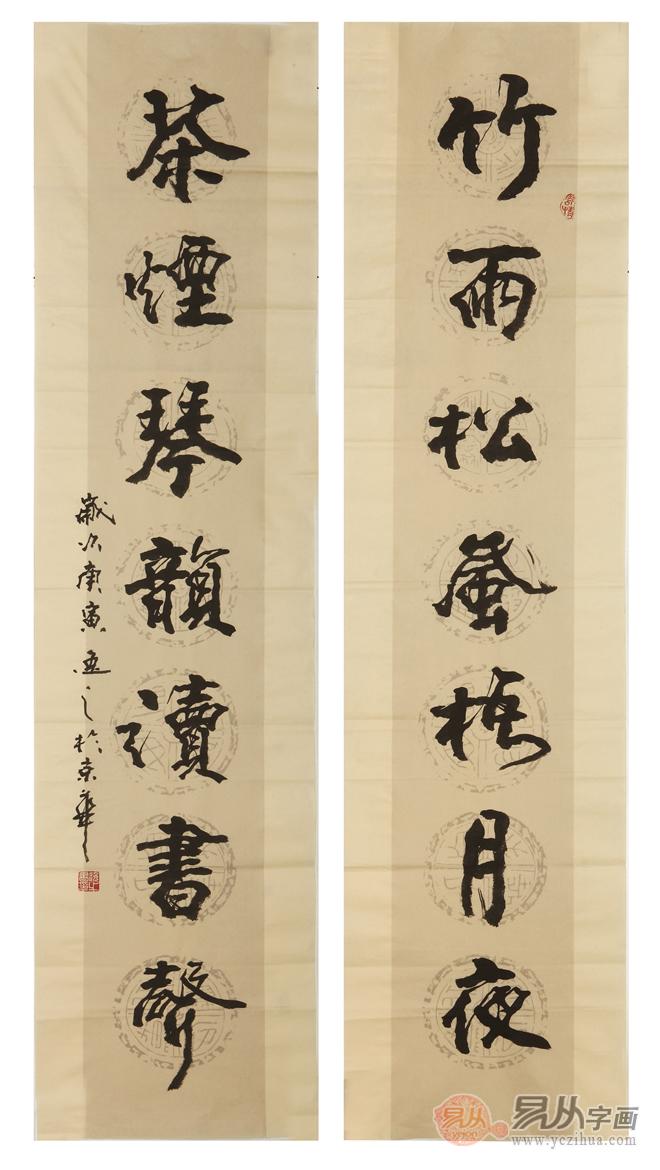 竹雨松風梧月夜
茶煙琴韻讀書聲
歲次庚寅 之於京華
易从字画
www.yczihua.com